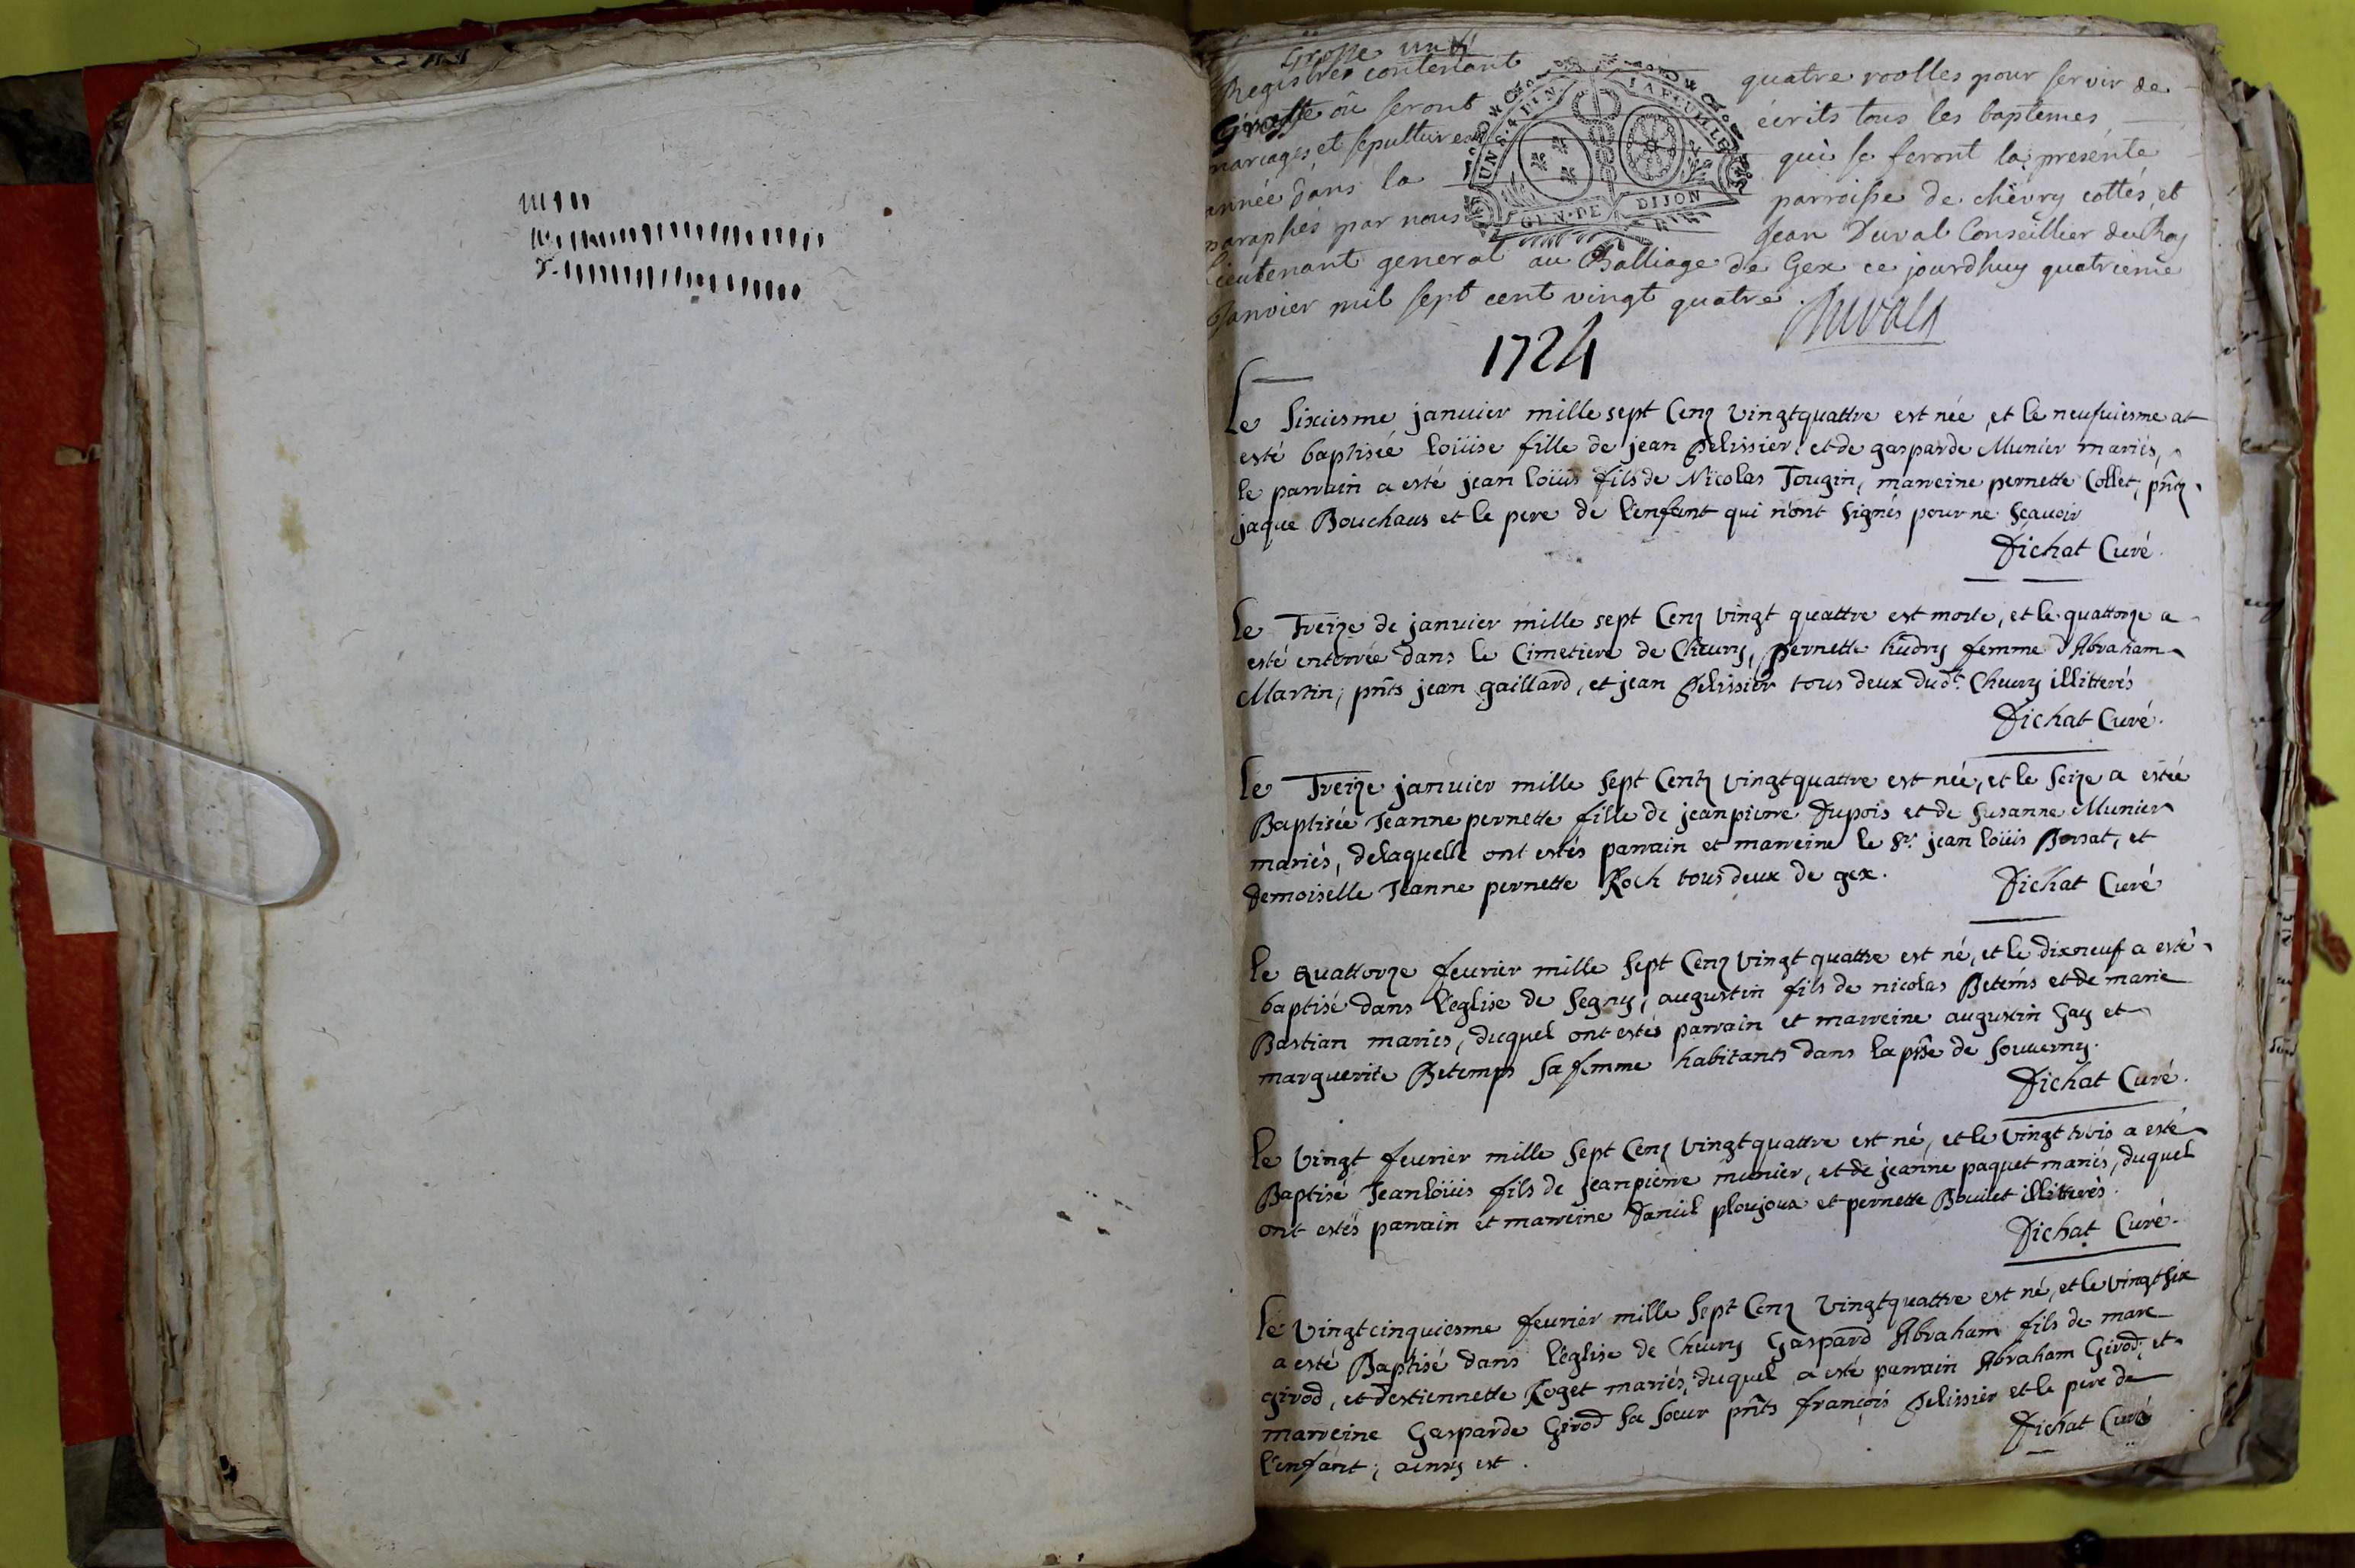 Grosse
Registres contenant quatre roolles pour servir de
Grosse où seront écrits tous les baptêmes
mariages et sepultures qui se feront la presente
année dans la parroisse de chevry cottés et
paraphés par nous Jean Duval Conseillier du Roy
Lieutenant general au Balliage de Gex ce jourdhuy quatrieme
Janvier mil sept cent vingt quatre
Duval
GEN. DE DIJON
1724
Le sixiesme januier mille sept Cenz vingtquattre est née, et le neufuiesme at
esté baptisée loüise fille de jean Pelissier et de gasparde Munier mariés,
le parrain a esté jean loüis fils de Nicolas Tougin, marreine pernette Collet, pñtz
jaque Bouchaus et le pere de l'enfant qui n'ont signés pour ne sçauoir
Dichat Curé.
Le Treize de januier mille sept Cenz vingt quattre est morte, et le quattorze a
esté enterrée dans le Cimetiere de Cheury, pernette hudry femme d'Abraham
Martin; pñts jean gaillard, et jean Pelissier tous deux dudt. Cheury illitterés
Dichat Curé.
Le Treize januier mille sept Centz vingtquattre est née, et le seize a estée
Baptisée Jeanne pernette fille de jeanpierre Dupois et de Susanne Munier
mariés, delaquelle ont estés parrain et marreine le Sr. jean loüis Borsat, et
Demoiselle Jeanne pernette Roch tous deux de gex.
Dichat Curé
Le Quattorze feurier mille sept Cenz vingt quattre est né, et le dixneuf a esté
baptisé dans l'eglise de Segny, augustin fils de nicolas Betems et de marie
Bastian mariés, duquel ont estés parrain et marreine augustin Gay et
marguerite Betemps sa femme habitants dans la pñse de Souuerny.
Dichat Curé.
Le vingt feurier mille sept Cenz vingtquattre est né, et le vingt trois a esté
Baptisé Jeanloüis fils de jeanpierre munier, et de jeanne paquet mariés, duquel
ont estés parrain et marreine Daniel ploujoux et pernette Bouilet illitterés.
Dichat Curé.
Le vingtcinquiesme feurier mille sept Cenz vingtquattre est né, et le vingt six
a esté Baptisé dans l'eglise de Cheury Gaspard Abraham fils de marc
girod, et destiennette Roget mariés, duquel a esté parrain Abraham Girod, et
marreine Gasparde Girod sa soeur pñts françois Pelissier et le pere de
l'enfant; ainsy est.
Dichat Curé